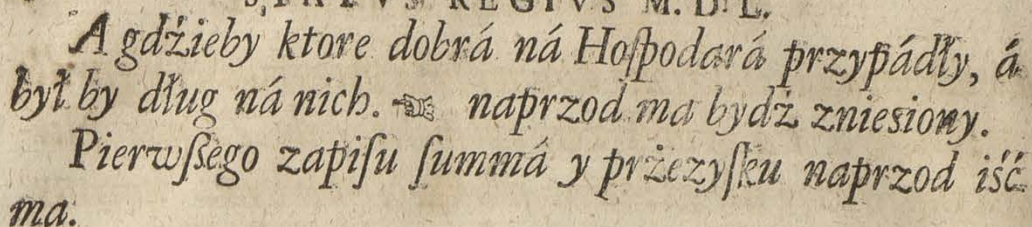 STATVS REGIVS M. D. L.
A gdźieby ktore dobrá ná Hoſpodará przypádły, á
był by dług ná nich. ☜ naprzod ma bydź zniesiony.
Pierwſßego zapiſu ſummá y przezyſku naprzod iść
ma.